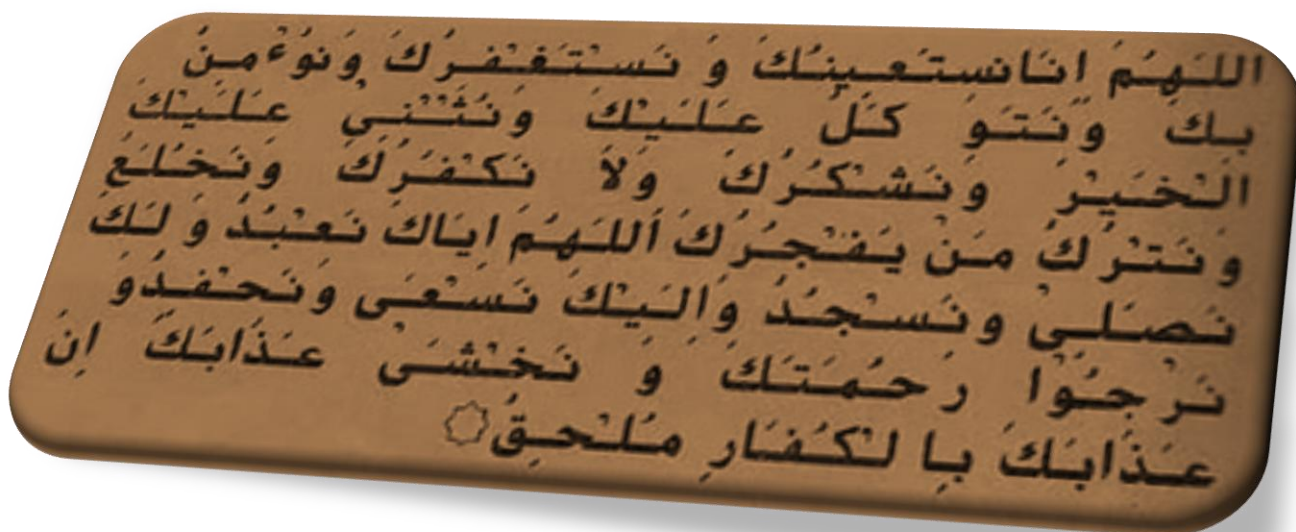 اللَهُمَ اِنَانَستَعِينُكَ وَ نَستَغفِرُكَ وَنُوْءمِنُ
بِكَ وَنَتَوَ كَلُ عَلَيْكَ وَنُثْنِي عَلَيْكَ
الْخَيْرَ وَنَشْكُرُكَ وَلَا نَكْفُرُكَ وَنَخْلَعُ
وَنَتْرُكُ مَنْ يَفْجُرُكَ اَللَهُمَ اِيَاكَ نَعْبُدُ وَلَكَ
نُصَلِى وَنَسْجُدُ وَاِلَيْكَ نَسْعَى وَنَحْفِدُ وَ
نَرْجُوْا رَحْمَتَكَ وَ نَخْشَى عَذَابَكَ اِنَ
عَذَابَكَ بِا لْكُفَارِ مُلْحِقٌ